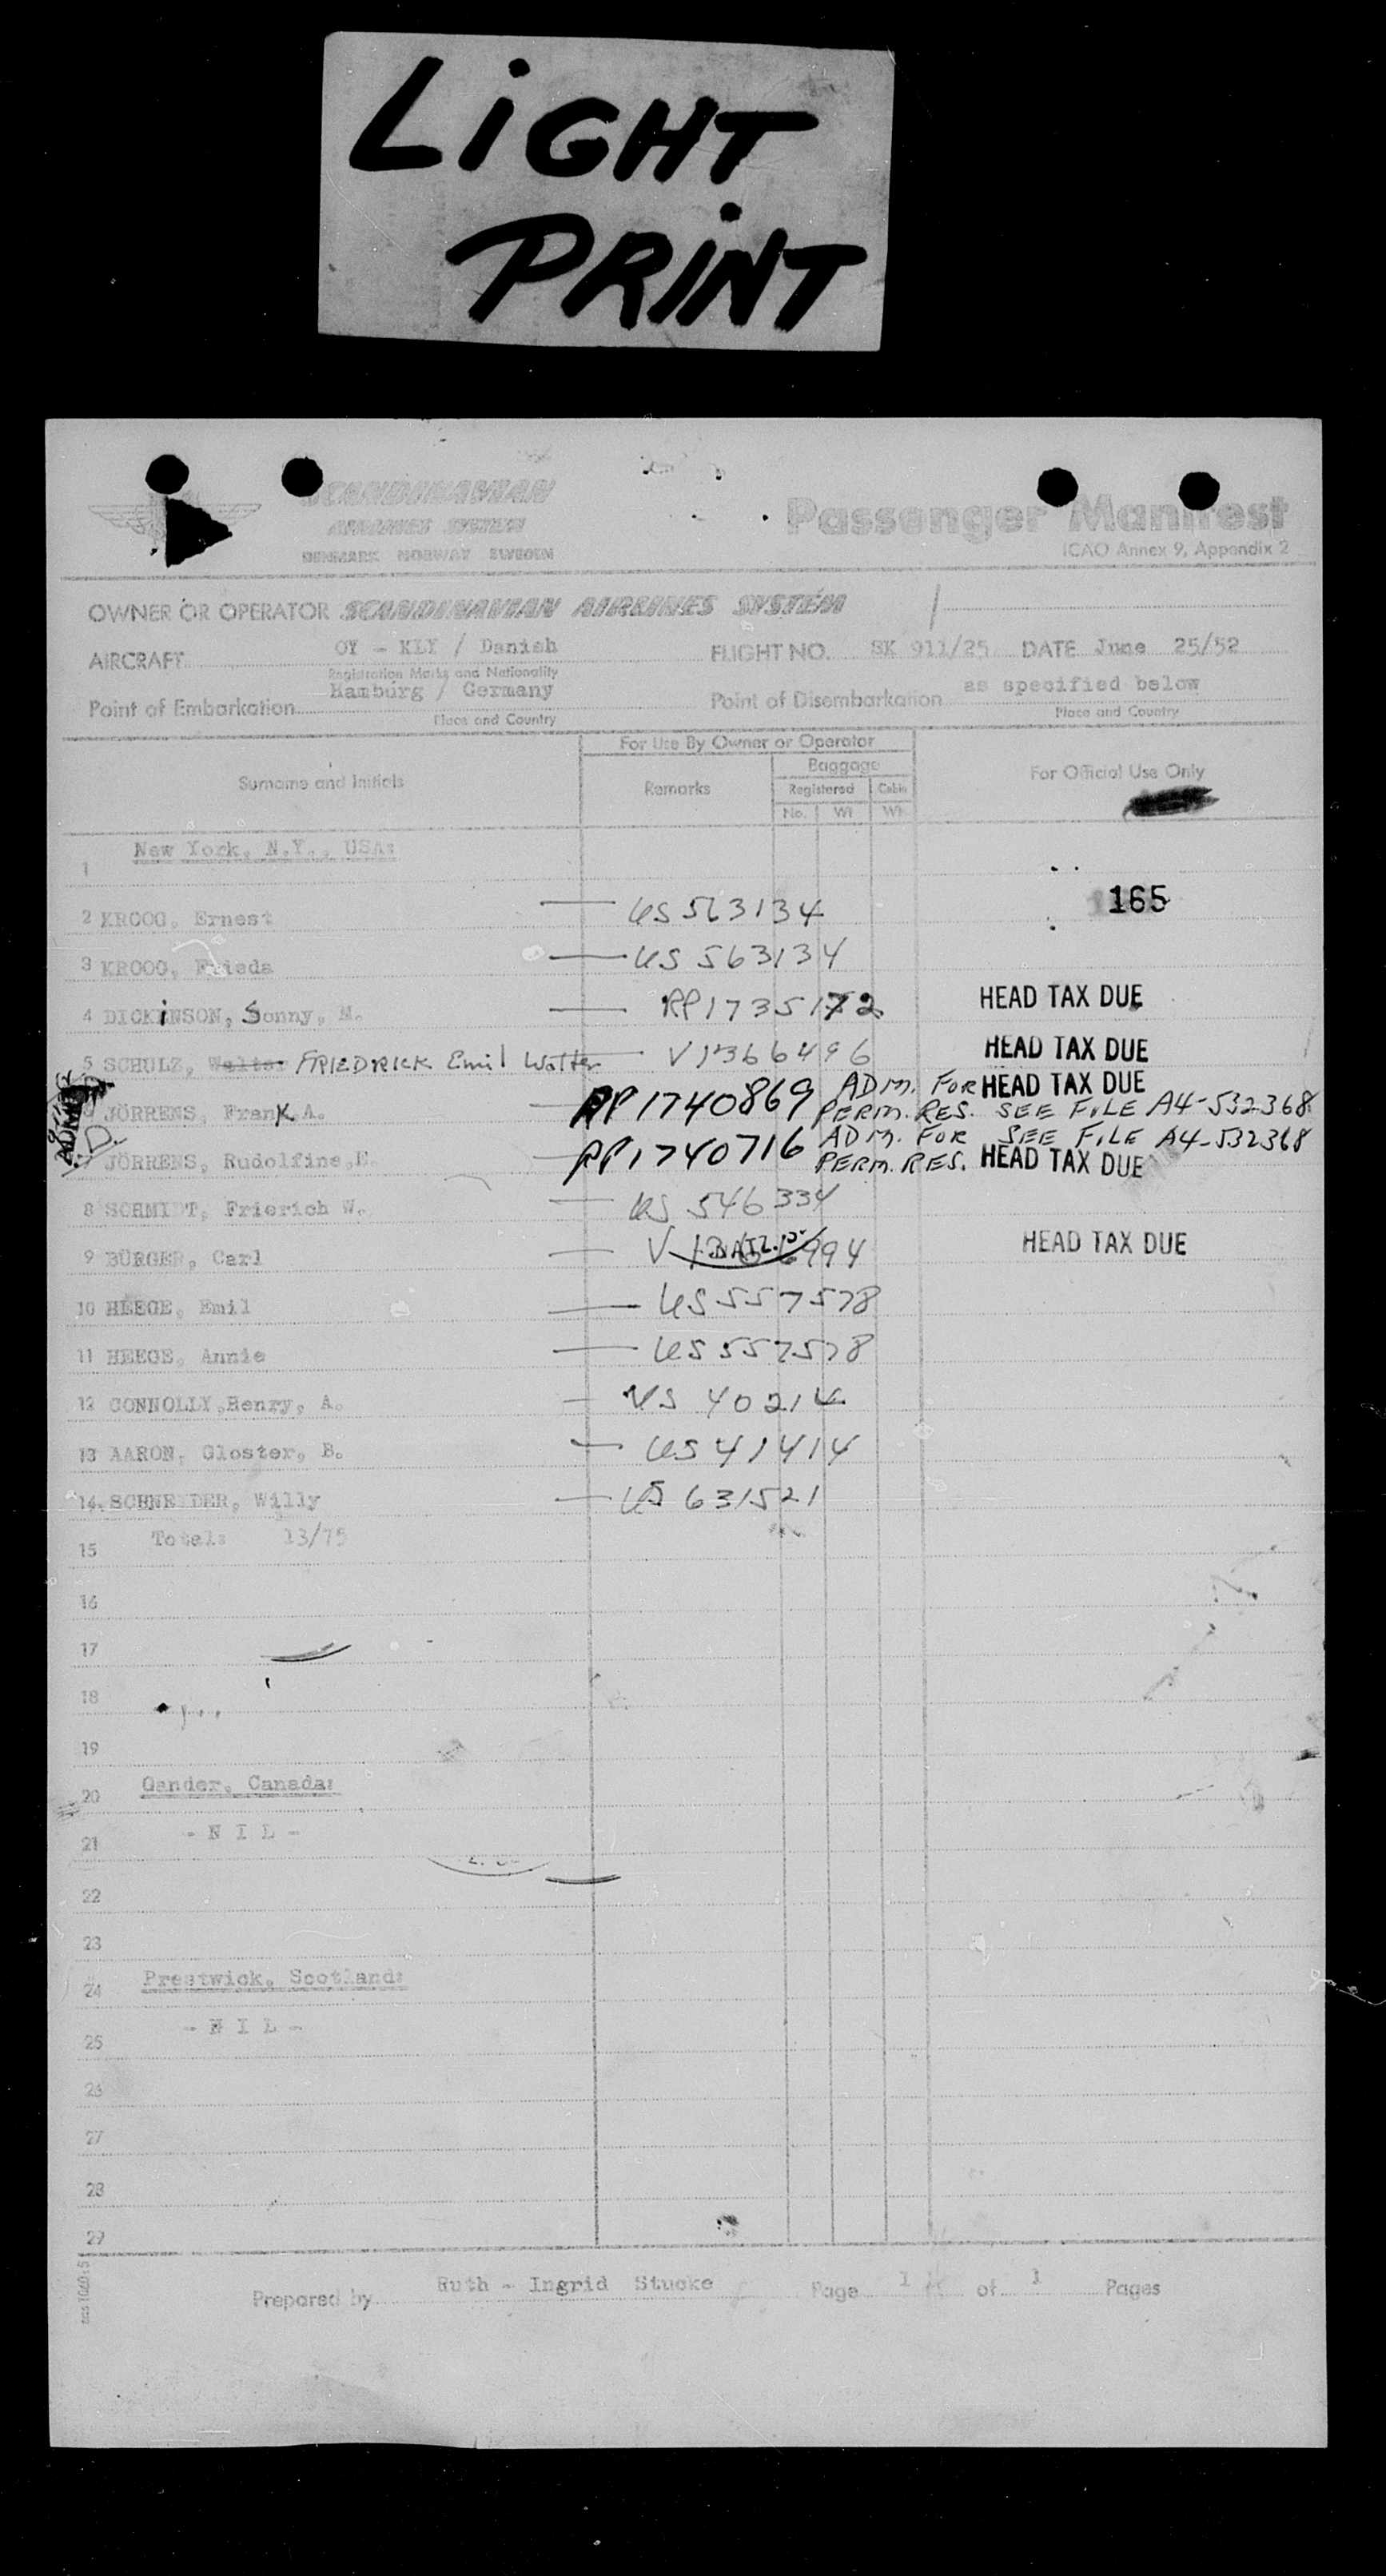 LiGHT
PRiNT
SCANDINAVIAN
AIRLINES SYSTEM
DENMARK NORWAY SWEDEN
Passenger Manifest
ICAO Annex 9, Appendix 2
OWNER OR OPERATOR SCANDINAVIAN AIRLINES SYSTEM
AIRCRAFT OY - KLY / Danish FLIGHT NO. SK 911/25 DATE June 25/52
Registration Marks and Nationality
Point of Embarkation Hamburg / Germany Point of Disembarkation as specified below
Place and Country Place and Country
For Use By Owner or Operator
Surname and Initials Remarks Baggage For Official Use Only
Registered Cabin
No. Wt Wt
1 New York, N.Y., USA:
165
2 KROOG, Ernest US 563134
3 KROOG, Frieda US 563134
4 DICKiNSON, Sonny, M. RP1735172 HEAD TAX DUE
5 SCHULZ, Walter FRIEDRICK Emil Walter V1366496 HEAD TAX DUE
6 JÖRRENS, FranK A. RP1740869 ADM. FOR PERM. RES. HEAD TAX DUE SEE FiLE A4-532368
7 JÖRRENS, Rudolfine, E. RP1740716 ADM. FOR PERM. RES. SEE FiLE A4-532368 HEAD TAX DUE
8 SCHMIDT, Frierich W. US 546334
9 BÜRGER, Carl HEAD TAX DUE
10 HEEGE, Emil US 557578
11 HEEGE, Annie US 557578
12 CONNOLLY, Henry, A. US 40214
13 AARON, Gloster, B. US 41414
14. SCHNEIDER, Willy US 631521
15 Total: 13/75
16
17
18
19
20 Gander, Canada:
21 - N I L -
22
23
24 Prestwick, Scotland:
25 - N I L -
26
27
28
29
Prepared by Ruth - Ingrid Stucke Page 1 of 1 Pages